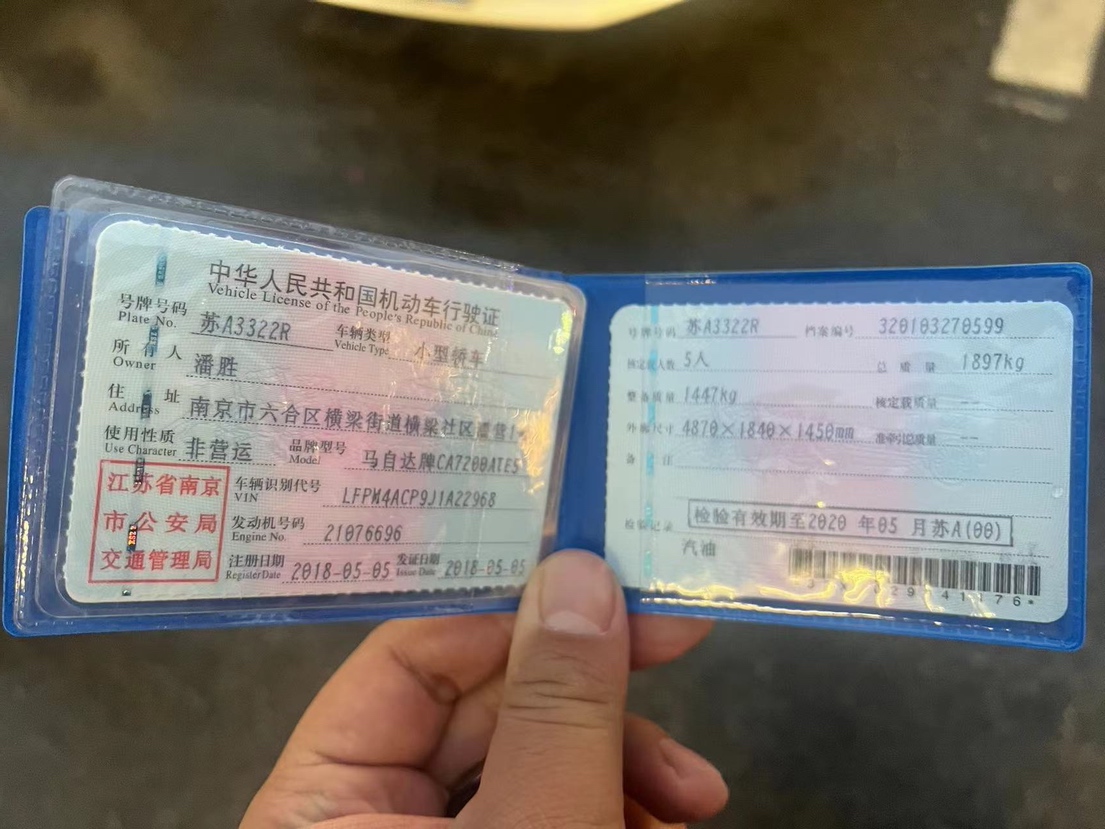 中华人民共和国机动车行驶证
Vehicle License of the People's Republic of China
号牌号码 苏A3322R 车辆类型 小型轿车
Plate No. Vehicle Type
所有人 潘胜
Owner
住址 南京市六合区横梁街道横梁社区
Address
使用性质 非营运 品牌型号 马自达牌CA7200ATE5
Use Character Model
江苏省南京
市公安局
交通管理局
车辆识别代号 LFPM4ACP9J1A22968
VIN
发动机号码 21076696
Engine No.
注册日期 2018-05-05 发证日期 2018-05-05
Register Date Issue Date
号牌号码 苏A3322R 档案编号 320103270599
核定载人数 5人 总质量 1897kg
整备质量 1447kg 核定载质量 --
外廓尺寸 4870×1840×1450mm 准牵引总质量 --
备注
检验记录 检验有效期至2020年05月苏A(00)
汽油